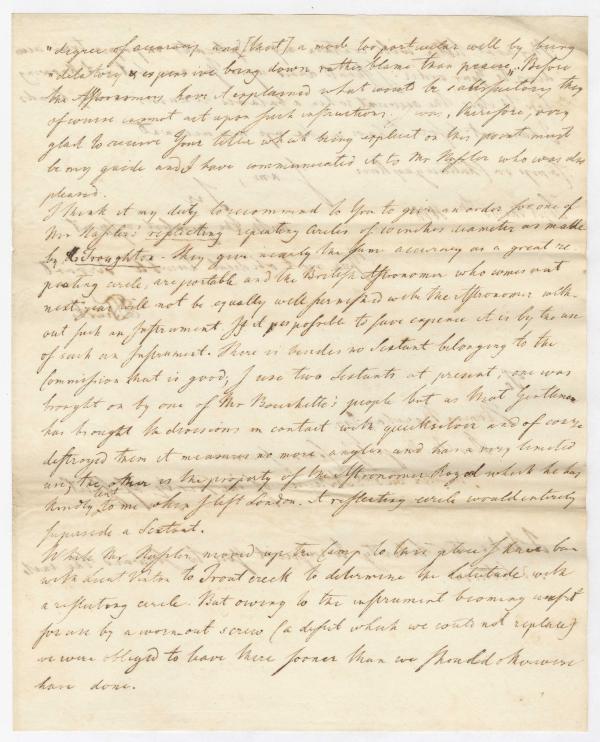 "degree of accuracy and [that] a mode too particular will by being
"dilatory & expensive bring down rather blame than praise". Before
the Astronomers have it explained what would be satisfactory they
of course cannot act upon such instructions. I was, therefore, very
glad to receive Your letter which being explicit on this point must
be my guide and I have communicated it to Mr Hassler who was also
pleased.
I think it my duty to recommend to You to give an order for one of
Mr Hassler's reflecting repeating circles of 10 inches diameter as made
by Troughton – They give nearly the same accuracy as a great re-
peating circle, are portable and the British Astronomer who comes out
next year will not be equally well furnished with the Astronomer with-
out such an Instrument. If it is possible to save expence it is by the use
of such an Instrument. There is besides no Sextant belonging to the
Commission that is good; I use two Sextants at present; one was
brought on by one of Mr Bouchette's people but as that Gentleman
has brought the divisions in contact with quicksilver and of course
destroyed them it measures no more angles and has a very limited
use; the other is the property of the Astronomer Royal which he has
kindly lent to me when I left London. A reflecting circle would entirely
supersede a Sextant.
While Mr Hassler moved up the Camp to this place I have been
with about Victor to Trout creek to determine the latitude with
a reflecting circle. But owing to the instrument becoming unfit
for use by a worn-out screw (a defect which we could not replace)
we were obliged to leave there sooner than we should otherwise
have done.